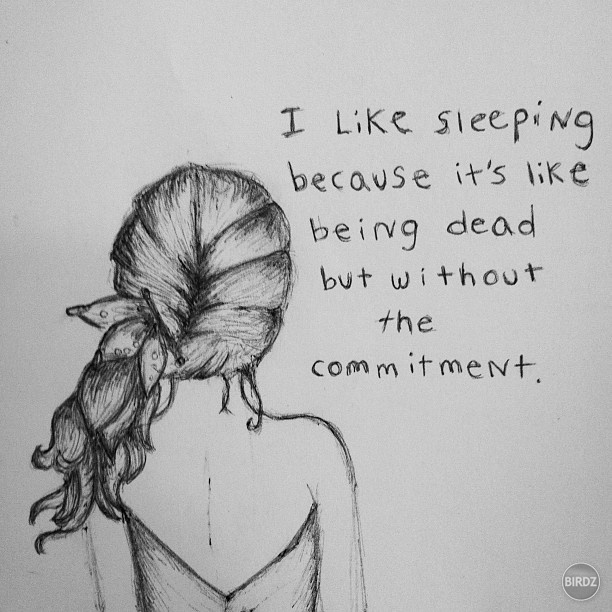 I LiKE sleepiNg
because it's like
beiNg dead
but without
the
commitmeNt.
BIRDZ